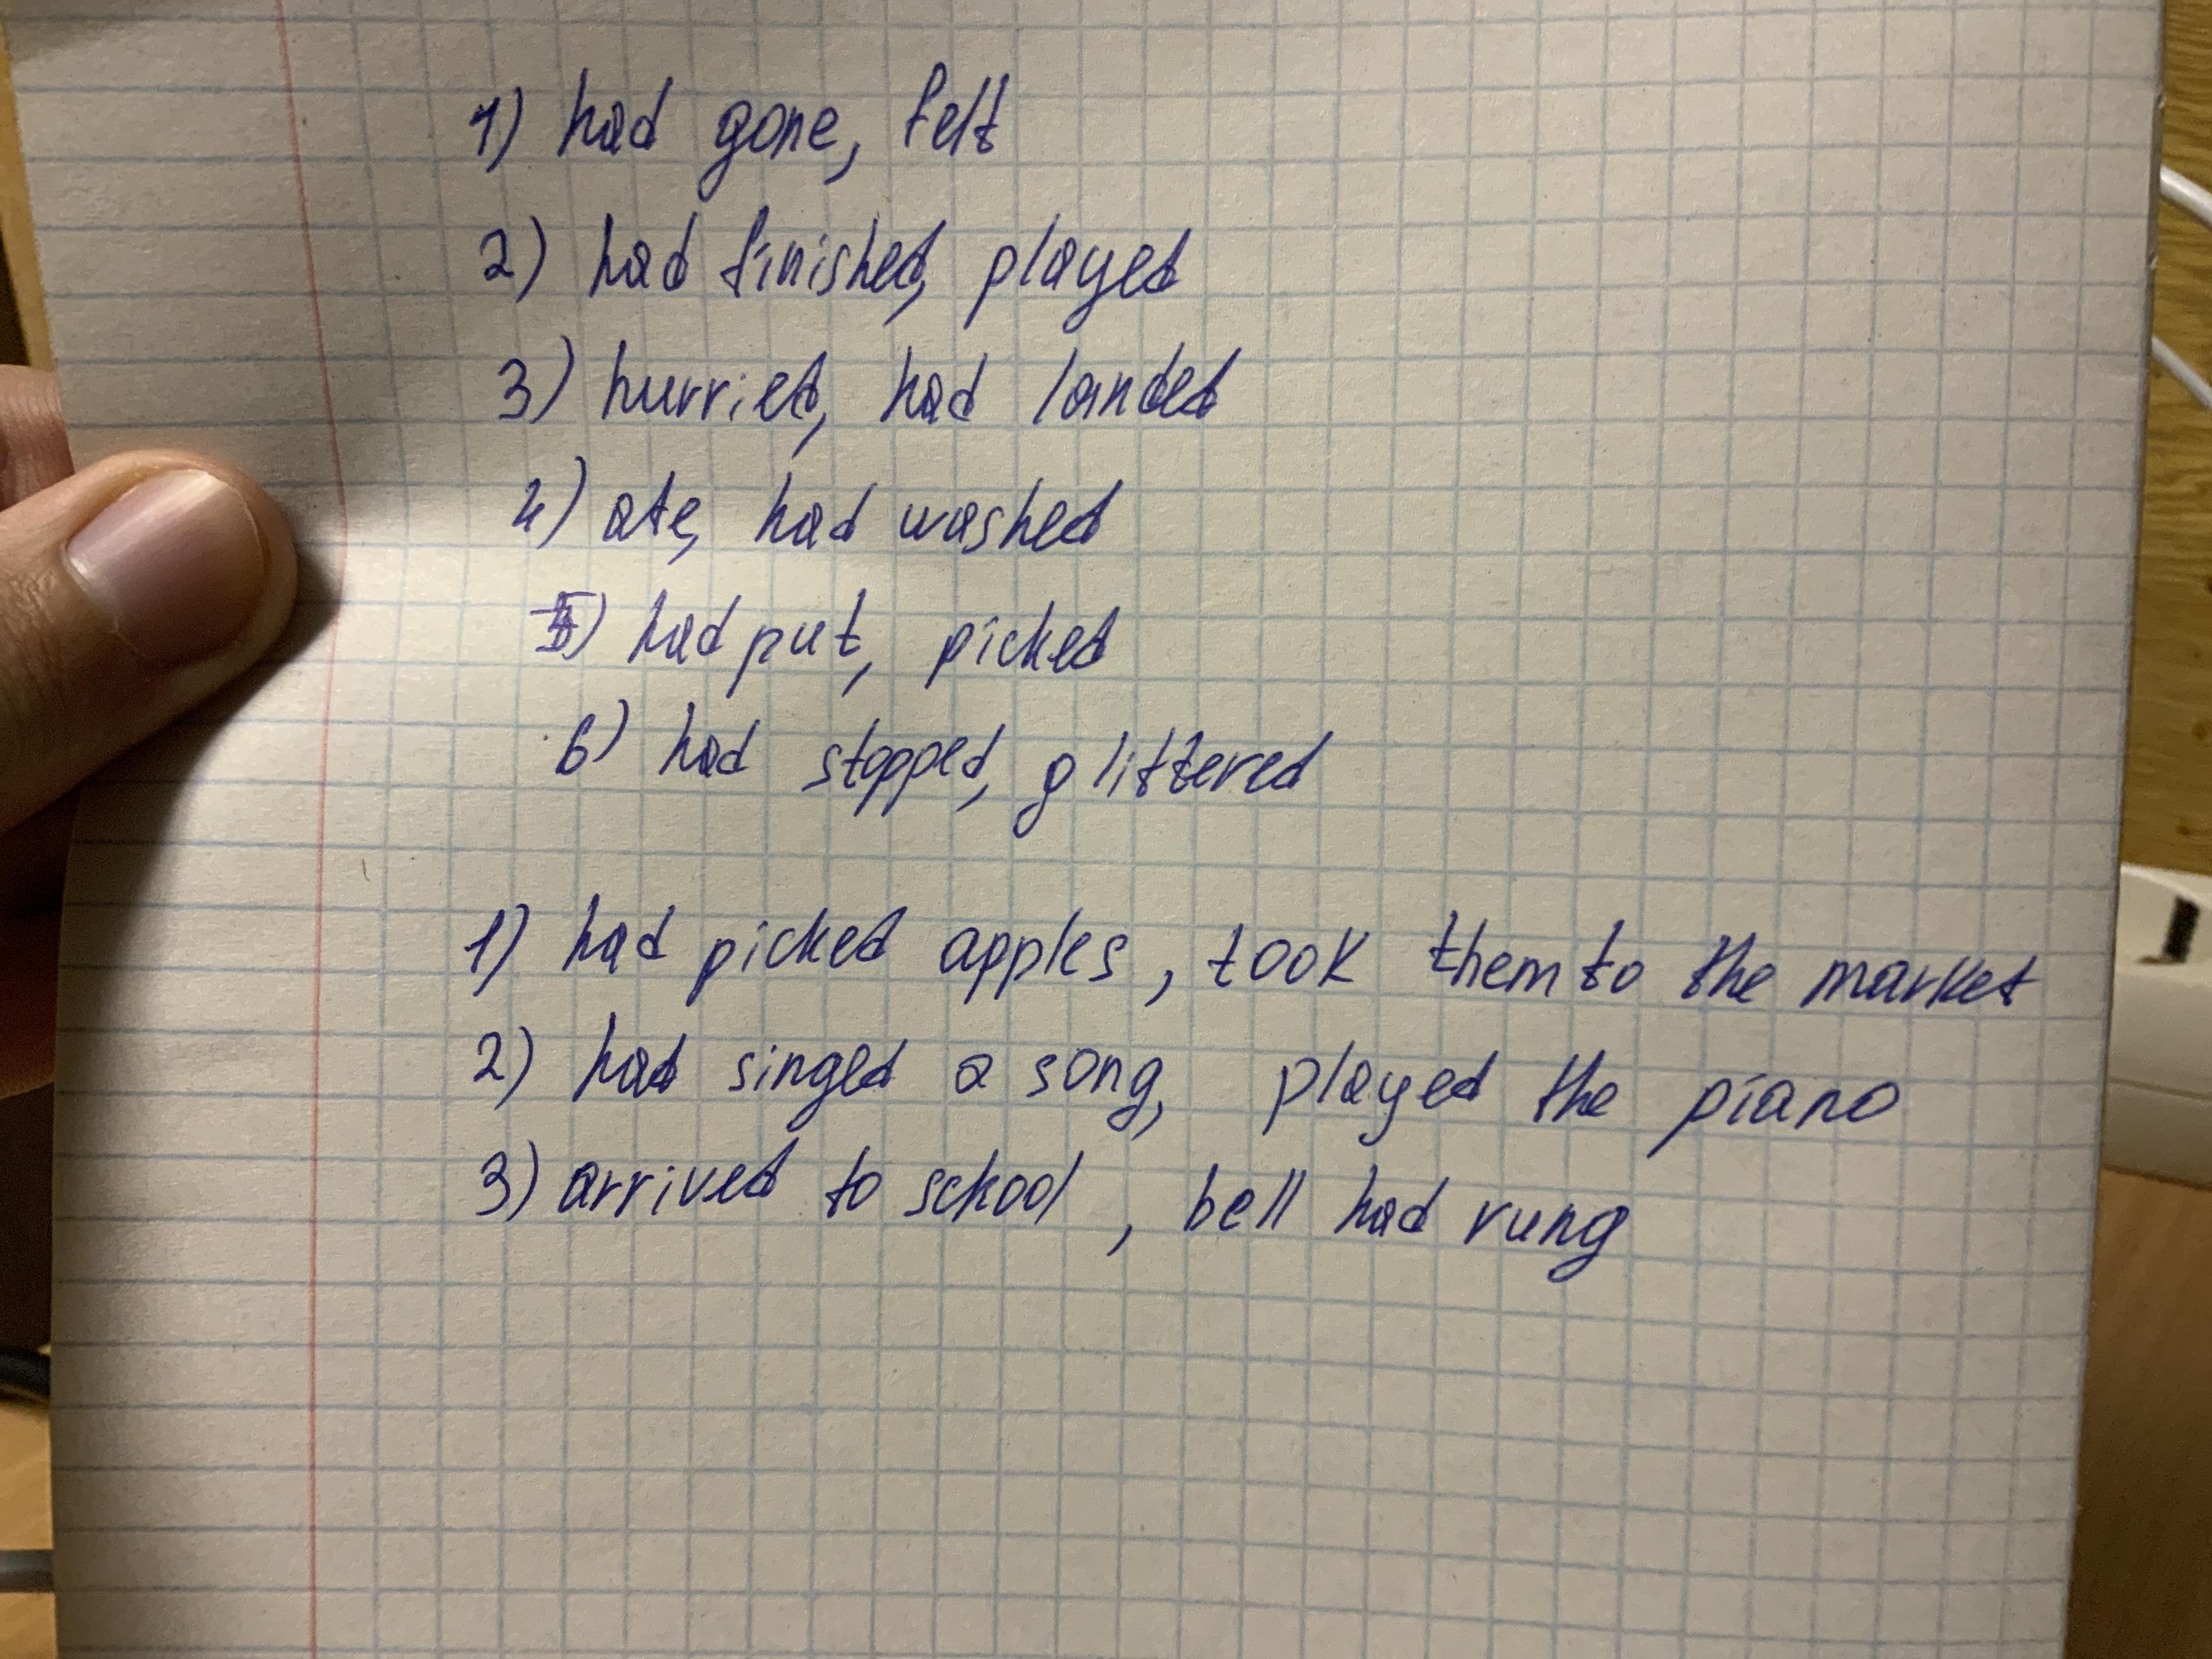 1) had gone, felt
2) had finished, played
3) hurried, had landed
4) ate, had washed
5) had put, picked
6) had stopped, glittered
1) had picked apples, took them to the market
2) had singed a song, played the piano
3) arrived to school, bell had rung